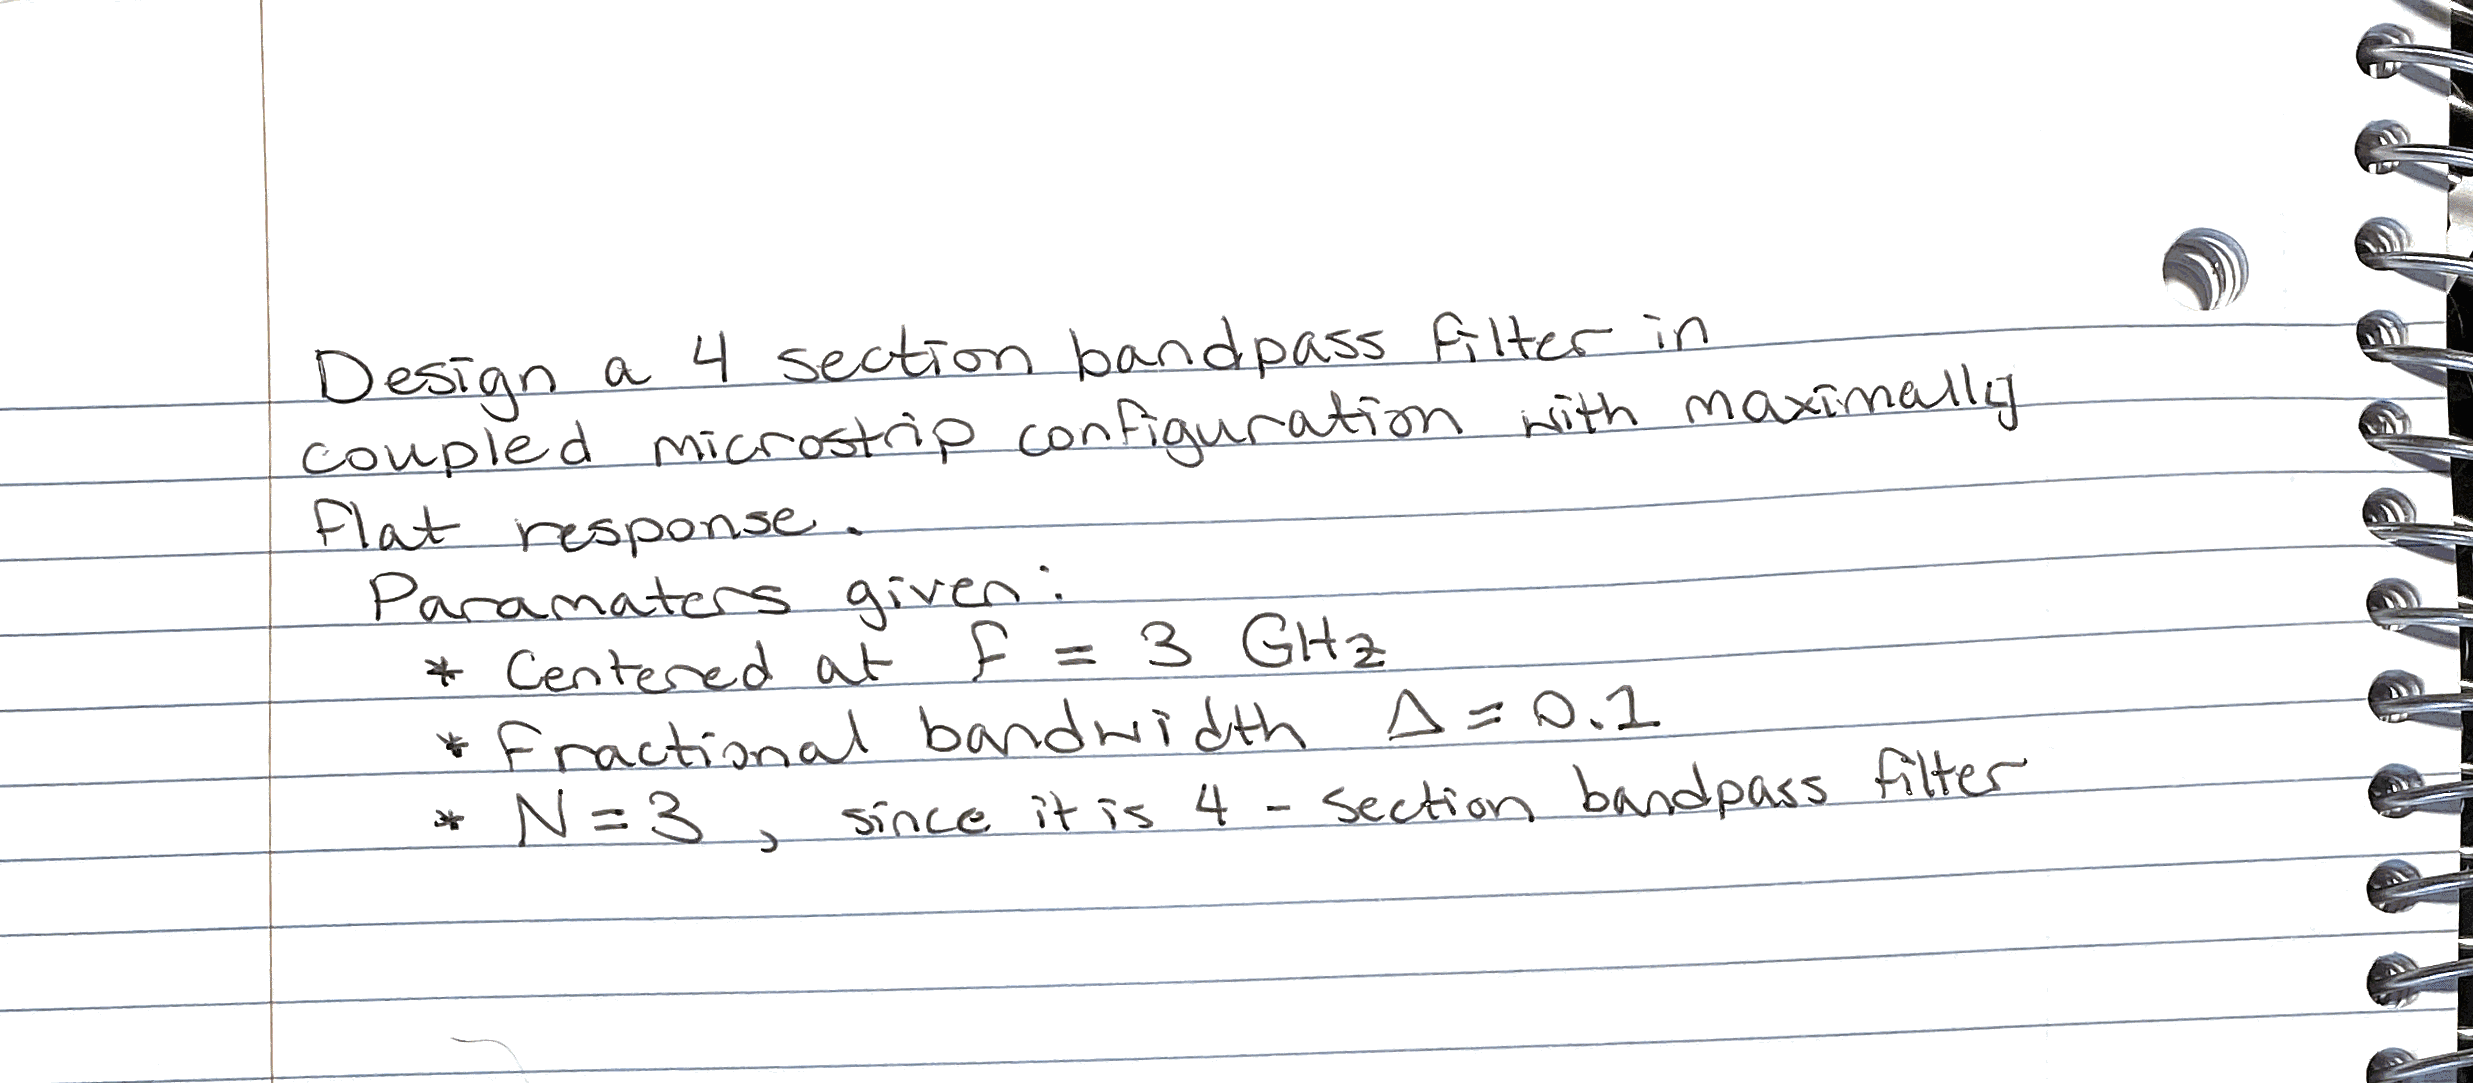 Design a 4 section bandpass filter in
coupled microstrip configuration with maximally
flat response.
Paramaters given:
* Centered at f = 3 GHz
* Fractional bandwidth Δ = 0.1
* N = 3, since it is 4 - section bandpass filter